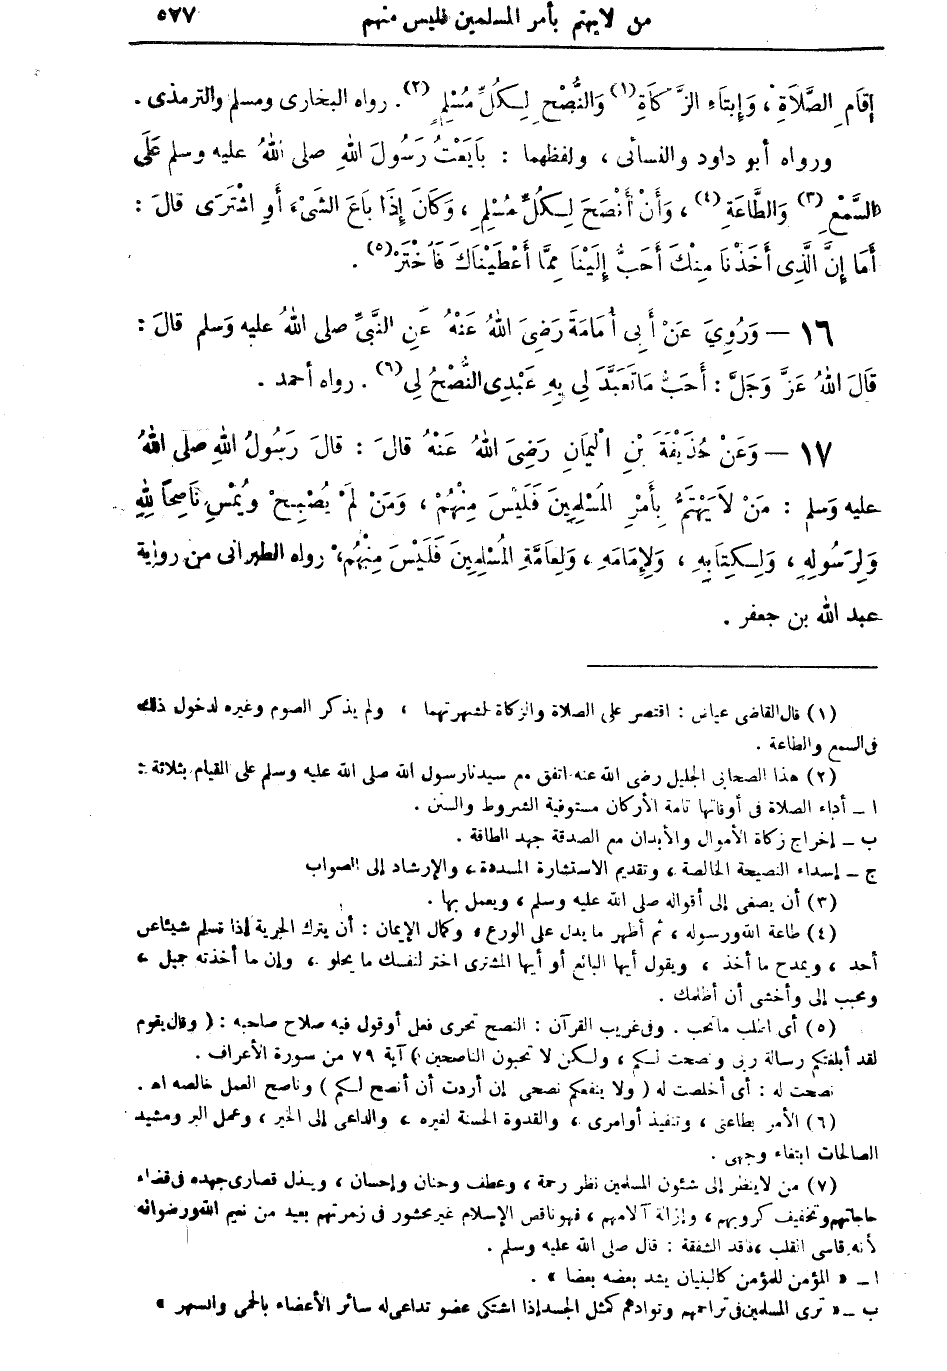 من لايهتم بأمر المسلمين فليس منهم ٥٧٧
إِقَامِ الصَّلَاةِ، وَإِيتَاءِ الزَّكَاةِ(١) وَالنُّصْحِ لِكُلِّ مُسْلِمٍ(٢). رواه البخارى ومسلم والترمذى.
ورواه أبو داود والنسائى، ولفظهما: بَايَعْتُ رَسُولَ اللهِ صلى اللهُ عليه وسلم عَلَى
السَّمْعِ(٣) وَالطَّاعَةِ(٤)، وَأَنْ أَنْصَحَ لِكُلِّ مُسْلِمٍ، وَكَانَ إِذَا بَاعَ الشَّىْءَ أَوِ اشْتَرَى قالَ:
أَمَا إِنَّ الَّذِى أَخَذْنَا مِنْكَ أَحَبُّ إِلَيْنَا مِمَّا أَعْطَيْنَاكَ فَاخْتَرْ(٥).
١٦ — وَرُوِيَ عَنْ أَبِى أُمَامَةَ رَضِىَ اللهُ عَنْهُ عَنِ النَّبِيِّ صلى اللهُ عليه وَسلم قالَ:
قَالَ اللهُ عَزَّ وَجَلَّ: أَحَبُّ مَا تَعَبَّدَ لِى بِهِ عَبْدِى النُّصْحُ لِى(٦). رواه أحمد.
١٧ — وَعَنْ حُذَيْفَةَ بْنِ الْيَمَانِ رَضِىَ اللهُ عَنْهُ قالَ: قالَ رَسُولُ اللهِ صلى اللهُ
عليه وَسلم: مَنْ لَا يَهْتَمُّ بِأَمْرِ الْمُسْلِمِينَ فَلَيْسَ مِنْهُمْ، وَمَنْ لَمْ يُصْبِحْ وَيُمْسِ نَاصِحًا لِلهِ
وَلِرَسُولِهِ، وَلِكِتَابِهِ، وَلِإِمَامِهِ، وَلِعَامَّةِ الْمُسْلِمِينَ فَلَيْسَ مِنْهُمْ. رواه الطبرانى من رواية
عبد الله بن جعفر.
(١) قال القاضى عياض: اقتصر على الصلاة والزكاة لشهرتهما، ولم يذكر الصوم وغيره لدخول ذلك
فى السمع والطاعة.
(٢) هذا الصحابى الجليل رضى الله عنه اتفق مع سيدنا رسول الله صلى الله عليه وسلم على القيام بثلاثة:
ا — أداء الصلاة فى أوقاتها تامة الأركان مستوفية الشروط والسنن.
ب — إخراج زكاة الأموال والأبدان مع الصدقة جهد الطاقة.
ج — إسداء النصيحة الخالصة، وتقديم الاستشارة المسددة، والإرشاد إلى الصواب
(٣) أن يصغى إلى أقواله صلى الله عليه وسلم، ويعمل بها.
(٤) طاعة الله ورسوله، ثم أظهر ما يدل على الورع، وكمال الإيمان: أن يترك الحرية إذا تسلم شيئا من
أحد، ويمدح ما أخذ، ويقول أيها البائع أو أيها المشترى اختر لنفسك ما يحلو، وإن ما أخذته جميل،
ومحبب إلى وأخشى أن أظلمك.
(٥) أى اطلب ما تحب. وفى غريب القرآن: النصح تحرى فعل أو قول فيه صلاح صاحبه: (وقال يقوم
لقد أبلغتكم رسالة ربى ونصحت لكم، ولكن لا تحبون الناصحين) آية ٧٩ من سورة الأعراف.
نصحت له: أى أخلصت له (ولا ينفعكم نصحى إن أردت أن أنصح لكم) وناصح العمل خالصه اه.
(٦) الأمر بطاعتى، وتنفيذ أوامرى، والقدوة الحسنة لغيره، والداعى إلى الخير، وعمل البر ومشيد
الصالحات ابتغاء وجهى.
(٧) من لا ينظر إلى شئون المسلمين نظر رحمة، وعطف وحنان وإحسان، ويبذل قصارى جهده فى قضاء
حاجاتهم وتخفيف كروبهم، وإزالة آلامهم، فهو ناقص الإسلام غير محشور فى زمرتهم بعيد من نعيم الله ورضوانه
لأنه قاسى القلب، فاقد الشفقة: قال صلى الله عليه وسلم.
ا — « المؤمن للمؤمن كالبنيان يشد بعضه بعضا ».
ب — « ترى المسلمين فى تراحمهم وتوادهم كمثل الجسد إذا اشتكى عضو تداعى له سائر الأعضاء بالحمى والسهر »